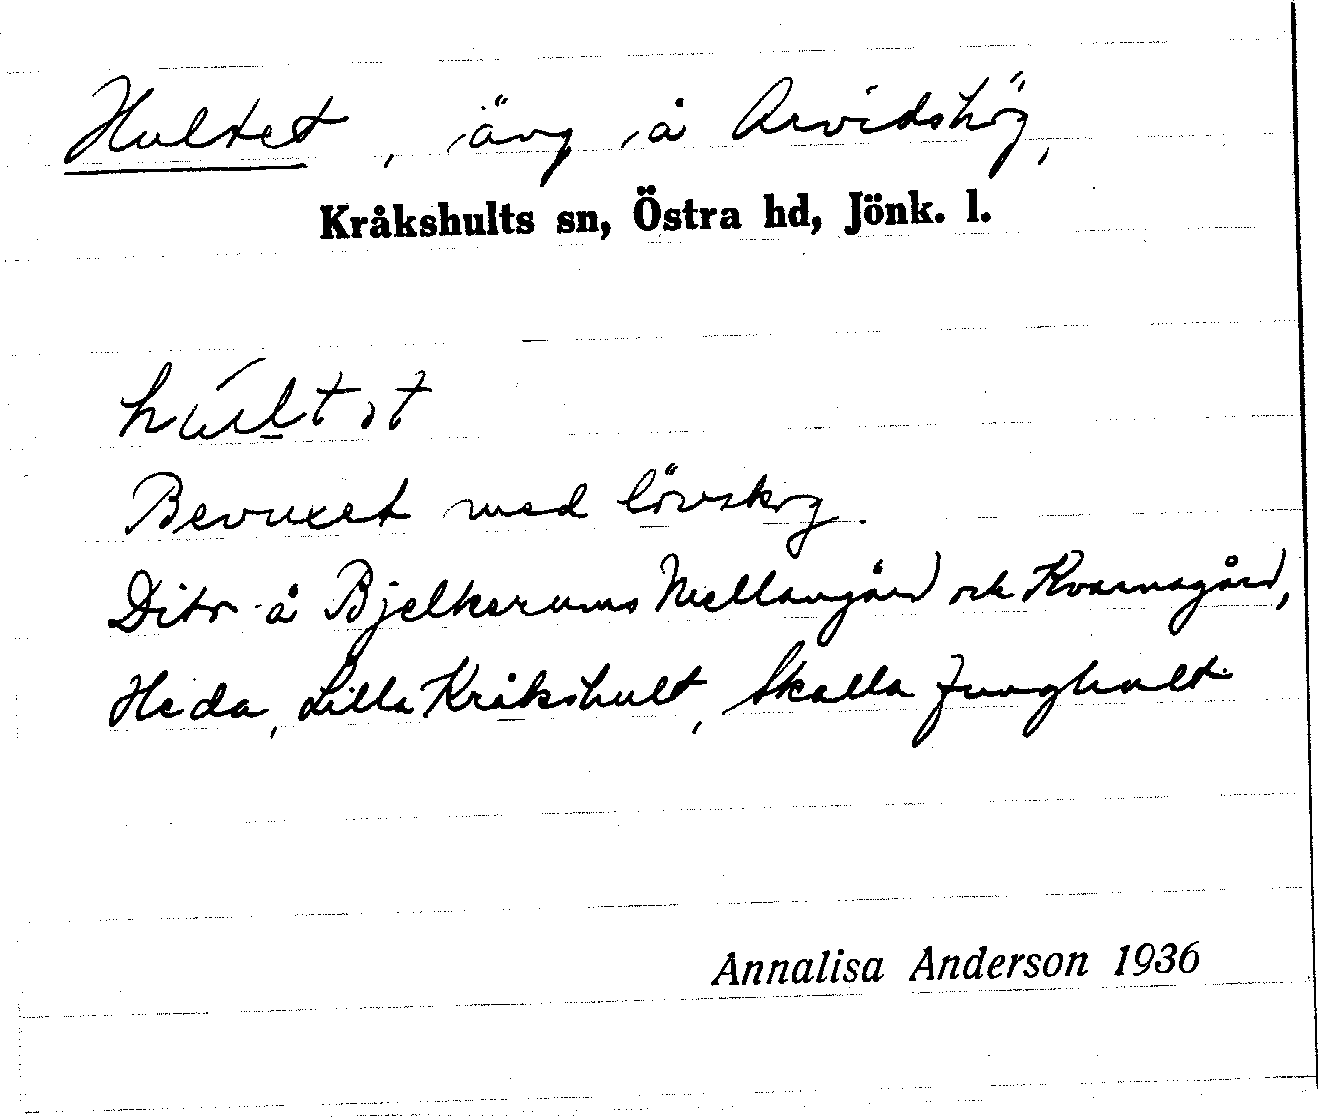 Hultet, äng å Arvidshög,
Kråkshults sn, Östra hd, Jönk. l.
Bevuxet med lövskog.
Dito å Bjelkerums Mellangård och Kvarnagård,
Heda, Lilla Kråkshult, Skalla Ljunghult
Annalisa Anderson 1936